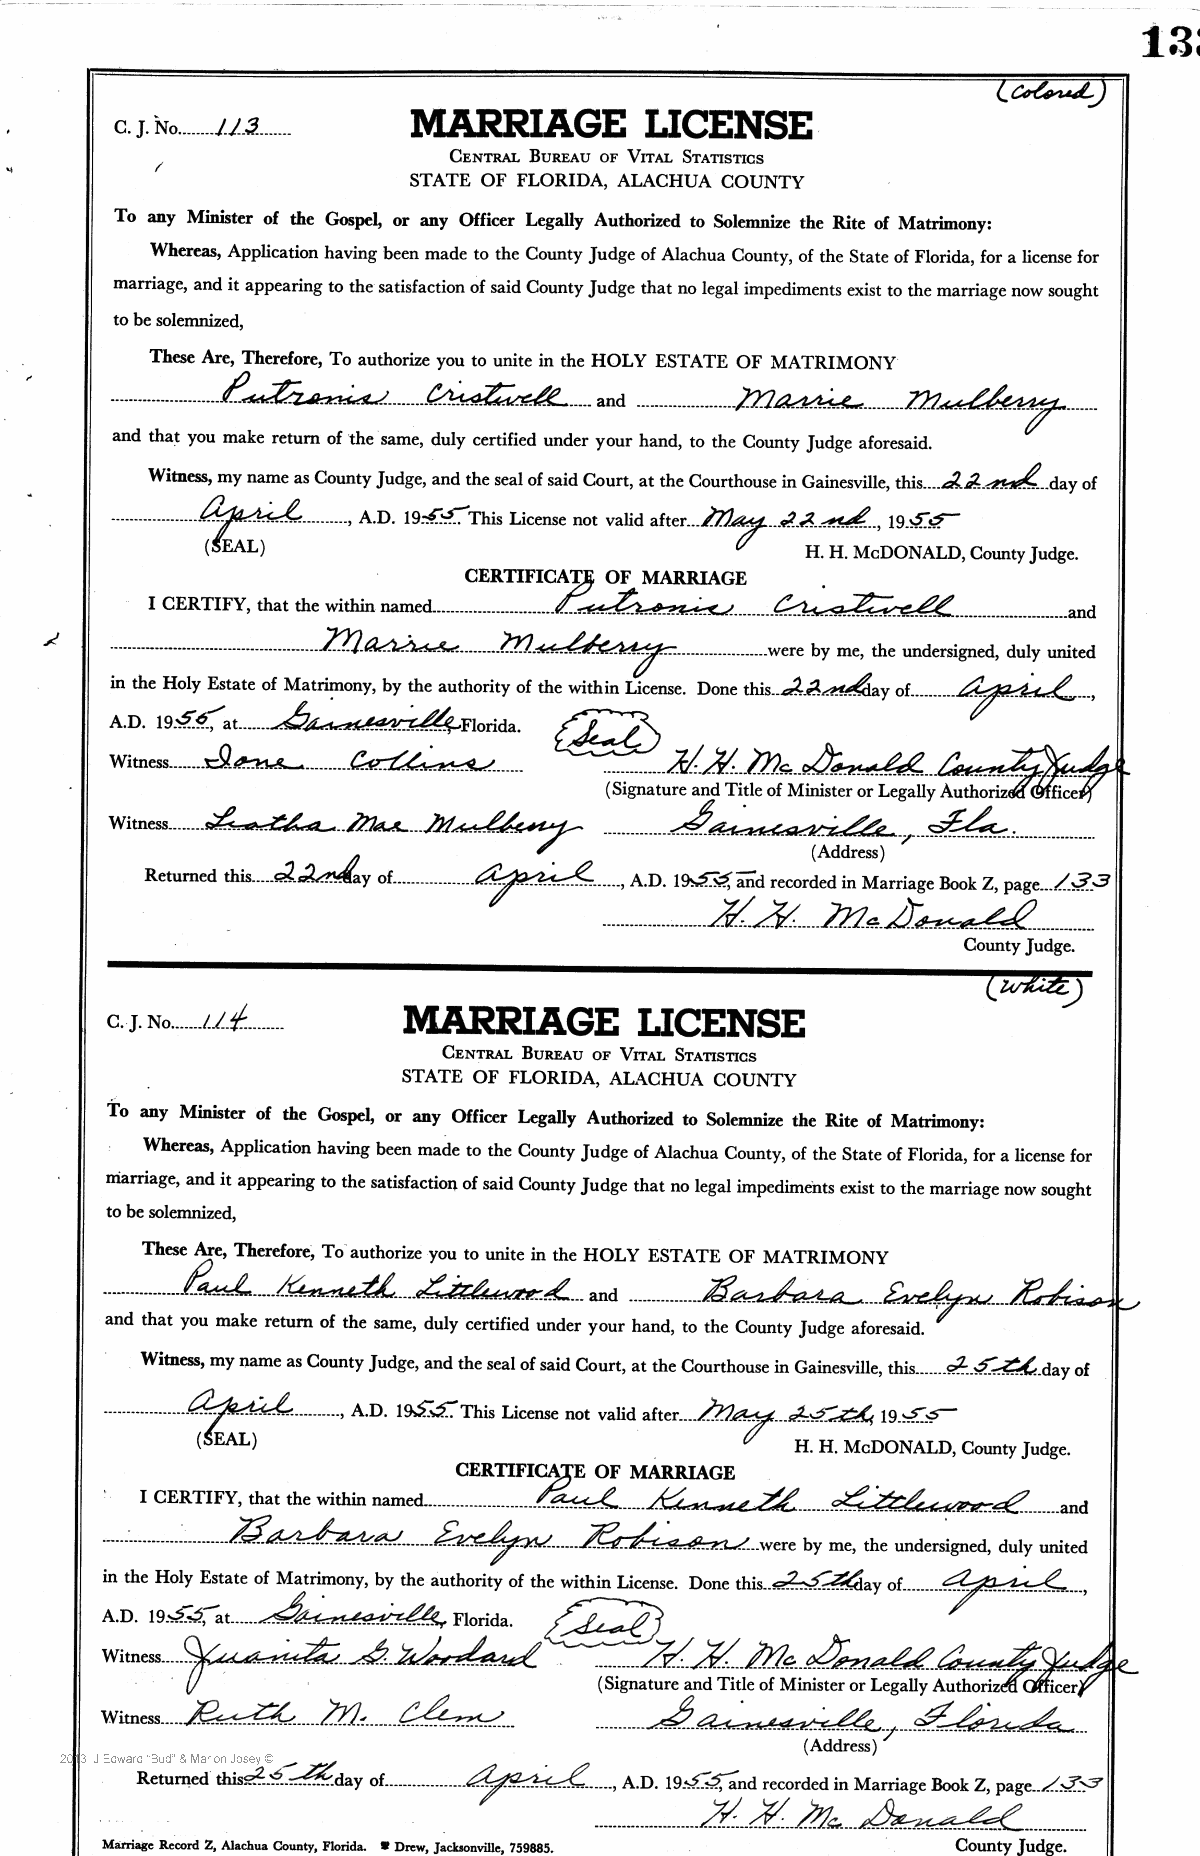 133
(Colored)
C. J. No. 113
MARRIAGE LICENSE
CENTRAL BUREAU OF VITAL STATISTICS
STATE OF FLORIDA, ALACHUA COUNTY
To any Minister of the Gospel, or any Officer Legally Authorized to Solemnize the Rite of Matrimony:
Whereas, Application having been made to the County Judge of Alachua County, of the State of Florida, for a license for
marriage, and it appearing to the satisfaction of said County Judge that no legal impediments exist to the marriage now sought
to be solemnized,
These Are, Therefore, To authorize you to unite in the HOLY ESTATE OF MATRIMONY
Putronis Cristwell and Marrie Mulberry
and that you make return of the same, duly certified under your hand, to the County Judge aforesaid.
Witness, my name as County Judge, and the seal of said Court, at the Courthouse in Gainesville, this 22nd day of
April, A.D. 1955. This License not valid after May 22nd, 1955
(SEAL) H. H. McDONALD, County Judge.
CERTIFICATE OF MARRIAGE
I CERTIFY, that the within named Putronis Cristwell and
Marrie Mulberry were by me, the undersigned, duly united
in the Holy Estate of Matrimony, by the authority of the within License. Done this 22nd day of April,
A.D. 1955, at Gainesville, Florida. (Seal)
Witness Ione Collins H. H. McDonald County Judge
(Signature and Title of Minister or Legally Authorized Officer)
Witness Leatha Mae Mulberry Gainesville, Fla.
(Address)
Returned this 22nd day of April, A.D. 1955, and recorded in Marriage Book Z, page 133
H. H. McDonald
County Judge.
(White)
C. J. No. 114
MARRIAGE LICENSE
CENTRAL BUREAU OF VITAL STATISTICS
STATE OF FLORIDA, ALACHUA COUNTY
To any Minister of the Gospel, or any Officer Legally Authorized to Solemnize the Rite of Matrimony:
Whereas, Application having been made to the County Judge of Alachua County, of the State of Florida, for a license for
marriage, and it appearing to the satisfaction of said County Judge that no legal impediments exist to the marriage now sought
to be solemnized,
These Are, Therefore, To authorize you to unite in the HOLY ESTATE OF MATRIMONY
Paul Kenneth Littlewood and Barbara Evelyn Robison
and that you make return of the same, duly certified under your hand, to the County Judge aforesaid.
Witness, my name as County Judge, and the seal of said Court, at the Courthouse in Gainesville, this 25th day of
April, A.D. 1955. This License not valid after May 25th, 1955
(SEAL) H. H. McDONALD, County Judge.
CERTIFICATE OF MARRIAGE
I CERTIFY, that the within named Paul Kenneth Littlewood and
Barbara Evelyn Robison were by me, the undersigned, duly united
in the Holy Estate of Matrimony, by the authority of the within License. Done this 25th day of April,
A.D. 1955, at Gainesville, Florida. (Seal)
Witness Juanita G. Woodard H. H. McDonald County Judge
(Signature and Title of Minister or Legally Authorized Officer)
Witness Ruth M. Clem Gainesville, Florida
(Address)
2013 J Edward "Bud" & Marion Josey ©
Returned this 25th day of April, A.D. 1955, and recorded in Marriage Book Z, page 133
H. H. McDonald
Marriage Record Z, Alachua County, Florida. Drew, Jacksonville, 759885. County Judge.